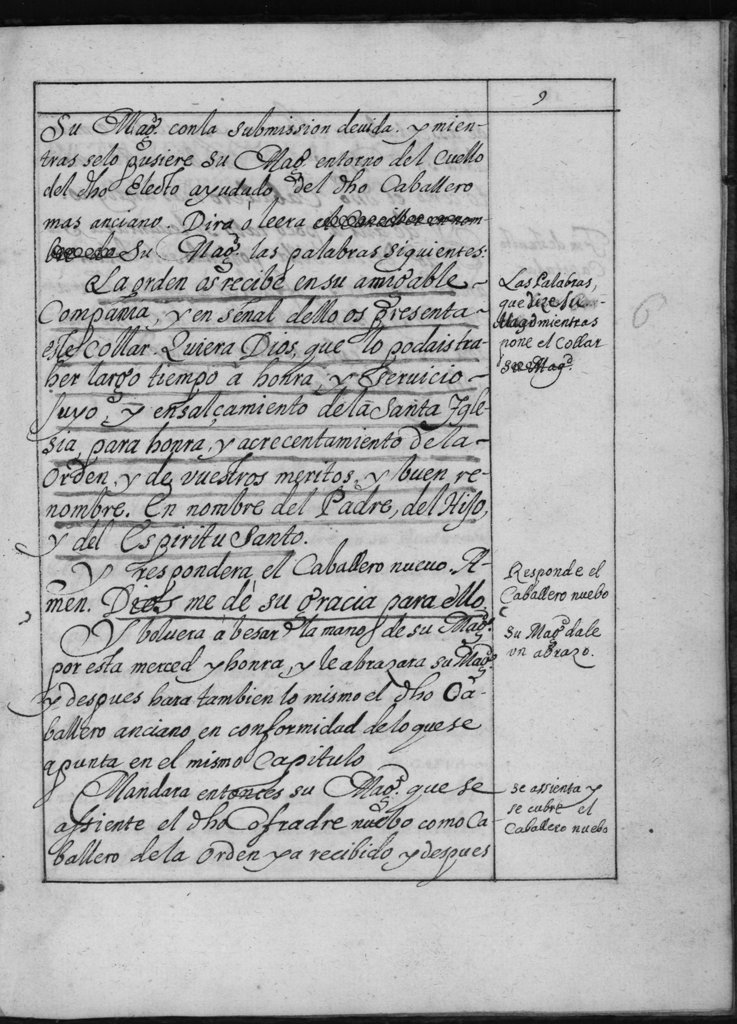 9
Su Magd. conla submission devida. y mien-
tras selo pusiere su Magd. entorno del cuello
del dho Electo ayudado del dho Caballero
mas anciano. Dira o leera
Su Magd. las palabras siguientes:
La orden os recibe en su amigable
Compañia, y en señal dello os presenta
este collar. Quiera Dios, que lo podais tra-
her largo tiempo à honra, y servicio
suyo, y ensalçamiento dela Santa Igle-
sia, para honra, y acrecentamiento de la
Orden, y de vuestros meritos, y buen re-
nombre. En nombre del Padre, del Hijo,
y del Espiritu Santo.
Y respondera el Caballero nuevo. A-
men. Dios me dè su gracia para ello
Y boluera à besar la mano de su Magd.
por esta merced y honra, y le abrazara su Magd.
y despues hara tambien lo mismo el dho Ca-
ballero anciano en conformidad de lo que se
apunta en el mismo Capitulo
Mandara entonces su Magd. que se
assiente el dho cofradre nuebo como Ca-
ballero dela orden ya recibido y despues
Las Palabras,
que dize su
Magd mientras
pone el Collar
su Magd.
6
Responde el
Caballero nuebo
Su Magd dale
un abrazo.
se assienta y
se cubre el
Caballero nuebo